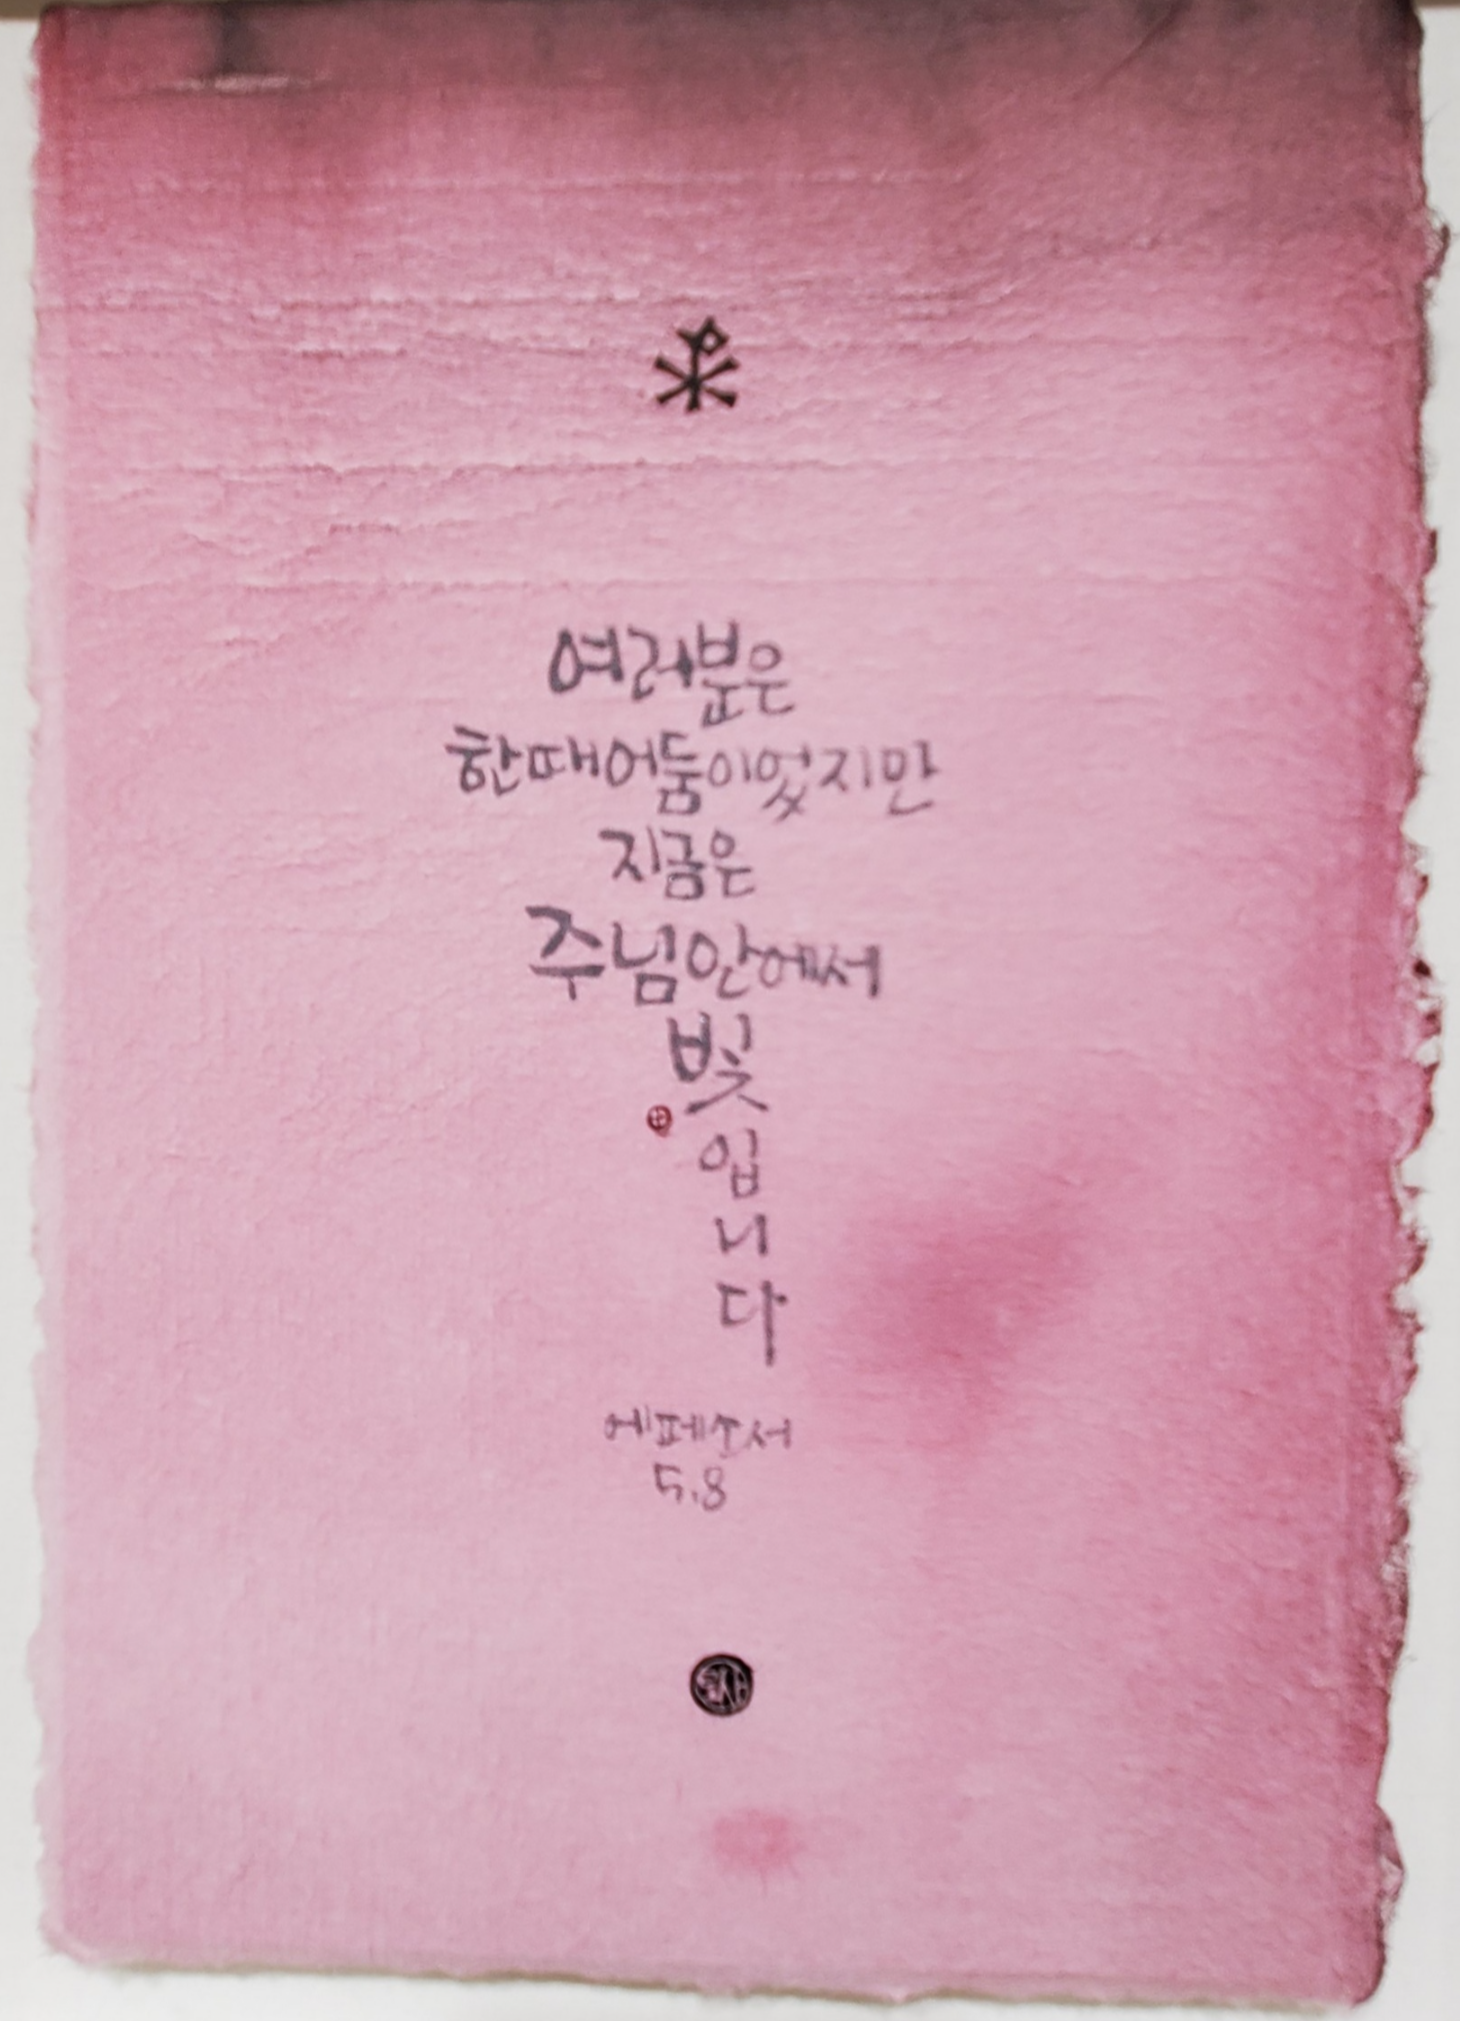 여러분은
한때어둠이었지만
지금은
주님안에서
빛
입
니
다
에페소서
5.8